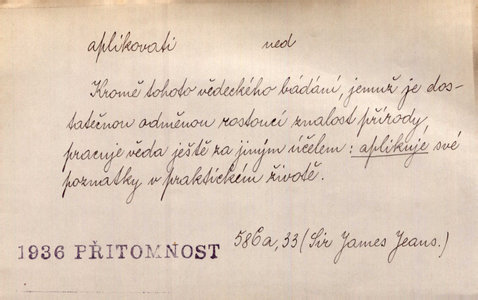 aplikovati ned
Kromě tohoto vědeckého bádání, jemuž je dos-
tatečnou odměnou rostoucí znalost přírody
pracuje věda ještě za jiným účelem: aplikuje své
poznatky v praktickém životě.
586a, 33 (Sir James Jeans.)
1936 PŘITOMNOST